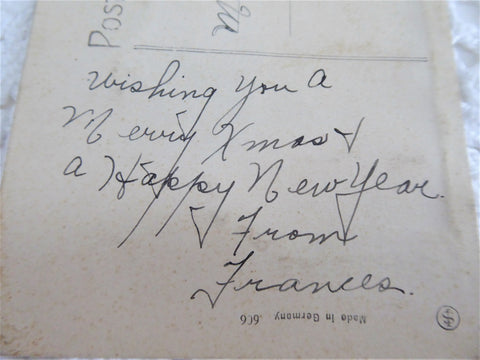 Post
Wishing you a
Merry Xmas &
a Happy New Year.
From
Frances.
Made in Germany. 606